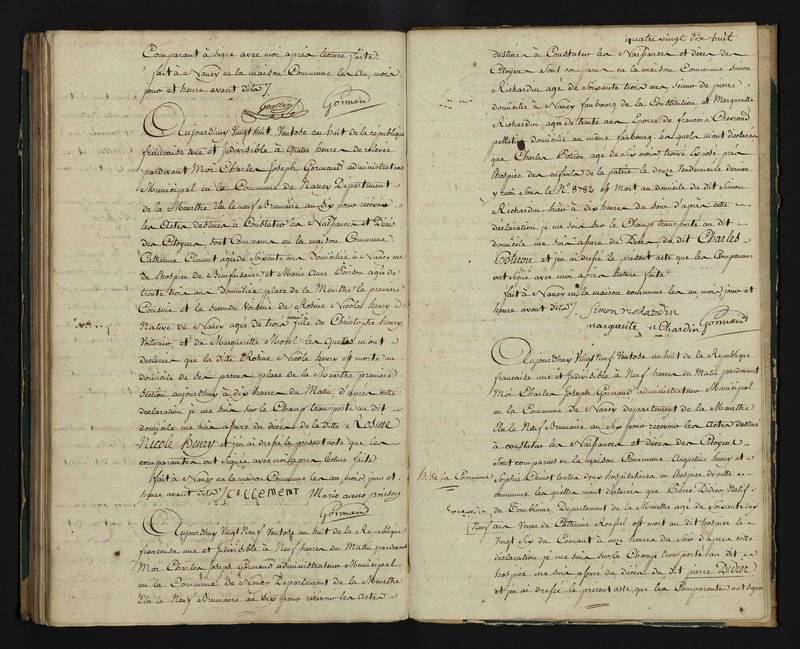 Comparant à signé avec moi après lecture faite.
fait à Nancy en la maison Commune les an, mois
jour et heure avant dits /.
Gormand
Aujourdhuy Vingt huit Ventose an huit de la république
française une et Indivisible à Quatre heures de relevée
pardevant Moi Charles Joseph Gormand administrateur
Municipal en la Commune de Nancy Département
de la Meurthe élu le neuf Brumaire an Six pour recevoir
les Actes destinés à Constater les Naissances et Décès
des Citoyens, sont Comparus en la maison Commune
Catherine Clement agée de Soixante ans Domiciliée à Nancy rue
de l'hospice de Bienfaisance et Marie Anne Poirson agée de
trente trois ans Domiciliée place de la Meurthe la première
Cousine et la seconde voisine de Rosine Nicole henry
Native de Nancy agée de trois fille de Christophe henry
Voiturier et de Marguerite Morel les Quelles m'ont
déclarée que la dite Rosine Nicole henry est morte au
domicile de ses parens place de la Meurthe première
Section aujourdhuy à dix heures du Matin d'après cette
déclaration je me suis sur le Champ transporté au dit
domicile me suis assuré du décès de la ditte Rosine
Nicole henry et j'en ai dressé le présent acte que les
comparantes ont signée avec moi après lecture faite
fait à Nancy en la maison Commune les an, mois jour et
heure avant dits /. C. CLLEMENT Marie anne poirson
Gormand
Aujourdhuy Vingt Neuf Ventose an huit de la République
française une et Indivisible à Neuf heures du Matin pardevant
Moi Charles Joseph Gormand administrateur Municipal
en la Commune de Nancy Département de la Meurthe
élu le Neuf Brumaire an Six pour recevoir les Actes
quatre vingt dix huit
destinés à Constater les Naissances et décès des
Citoyens Sont comparus en la maison Commune Simon
Richardin agé de Soixante trois ans
domicilié à Nancy faubourg de la Constitution et Marguerite
Richardin agée de trente ans Epouse de françois
domicilié au même faubourg les quels m'ont déclarés
que Charles Potiron agé de Six mois trouvé Exposé près
l'hospice des enfants de la patrie le douze Vendemiaire dernier
y reçu Sous le No. 8782 est Mort au domicile du dit Simon
Richardin hier à dix heures du Soir d'après cette
déclaration je me suis sur le Champ transporté au dit
domicile me suis assuré du Décès du dit Charles
Potiron et j'en ai dressé le présent acte que les Comparans
ont signé avec moi après lecture faite
fait à Nancy en la maison commune les an, mois, jour et
heure avant dits /. Simon richardin
marguerite richardin Gormand
Aujourdhuy Vingt Neuf Ventose an huit de la République
française une et Indivisible à Neuf heures du Matin pardevant
Moi Charles Joseph Gormand administrateur Municipal
en la Commune de Nancy Département de la Meurthe
élu le Neuf Brumaire an Six pour recevoir les Actes destiné
à constater les Naissances et décès des Citoyens
Sont comparus en la maison Commune Augustine henry et
h. de la Commune
Sophie toutes deux hospitalières en l'hospice de cette
commune les quelles m'ont déclarées que Didier Natif
de Domblaine, Département de la Meurthe agé de Soixante dix
Neuf
ans Veuf de Catherine est mort au dit hospice le
Vingt Six du Courant à onze heures du Soir d'après cette
déclaration je me suis sur le Champ transporté au dit
hospice me suis assuré du Décès du dit pierre Didier
et j'en ai dressé le présent acte que les Comparantes ont signée